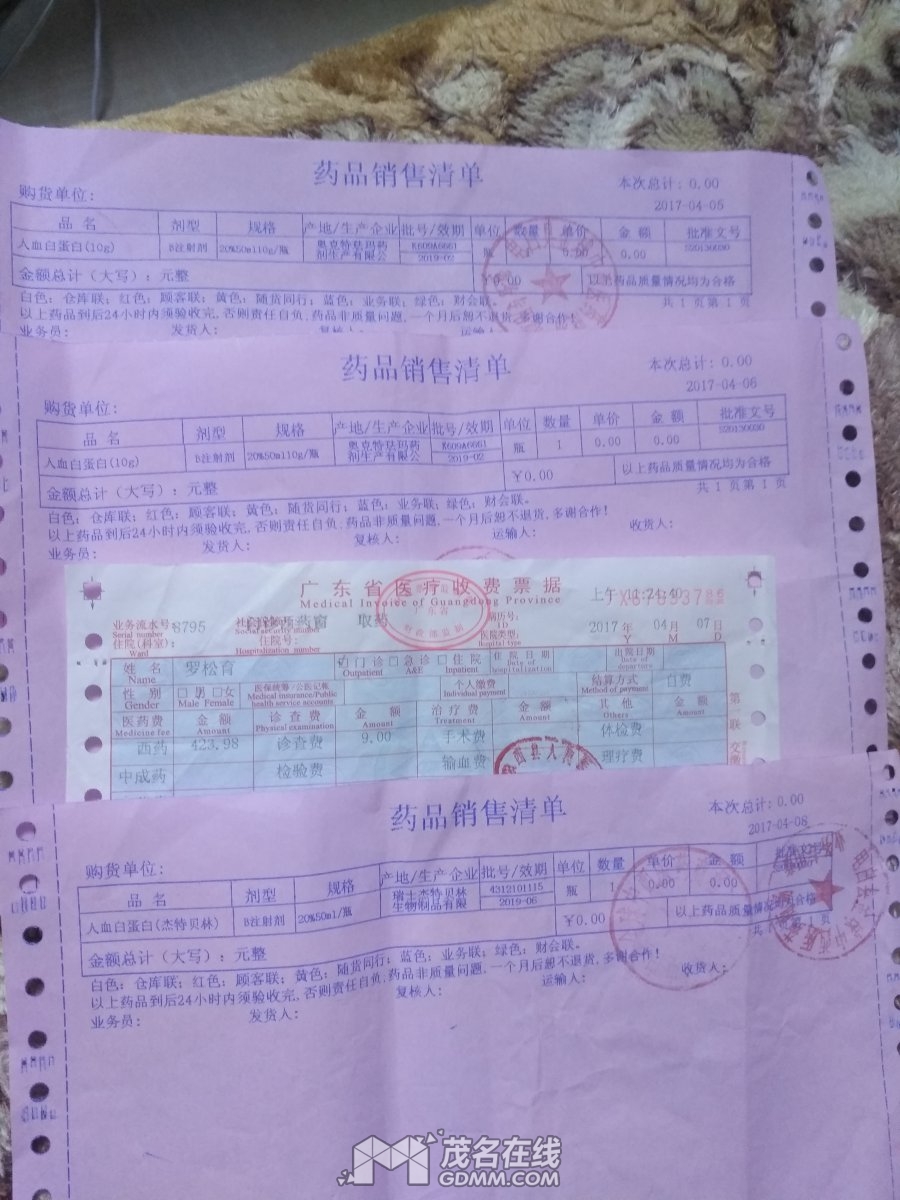 药品销售清单
本次总计: 0.00
购货单位:
2017-04-05
品 名 剂型 规格 产地/生产企业 批号/效期 单位 数量 单价 金 额
人血白蛋白(10g) B注射剂 20%50ml10g/瓶 奥克特珐玛药剂生产有限公 K609A6661 2019-02 瓶 0.00 0.00 S20130030
金额总计（大写）：元整 0.00 以上药品质量情况均为合格
白色：仓库联；红色：顾客联；黄色：随货同行；蓝色：业务联；绿色：财会联。 共 1 页第 1 页
以上药品到后24小时内须验收完,否则责任自负.药品非质量问题,一个月后恕不退货,多谢合作!
业务员: 发货人: 复核人: 运输人:
药品销售清单
本次总计: 0.00
2017-04-06
购货单位:
品 名 剂型 规格 产地/生产企业 批号/效期 单位 数量 单价 金 额 批准文号
人血白蛋白(10g) B注射剂 20%50ml10g/瓶 奥克特珐玛药剂生产有限公 K609A6661 2019-02 瓶 1 0.00 0.00 S20130030
金额总计（大写）：元整 ￥0.00 以上药品质量情况均为合格
白色：仓库联；红色：顾客联；黄色：随货同行；蓝色：业务联；绿色：财会联。 共 1 页第 1 页
以上药品到后24小时内须验收完,否则责任自负.药品非质量问题,一个月后恕不退货,多谢合作!
业务员: 发货人: 复核人: 运输人: 收货人:
广东省医疗收费票据 上午 11:24:40
Medical Invoice of Guangdong Province
业务流水号: 8795 取药 病历号:
Serial number Social security number ID
住院(科室): 住院号: 医院类型: 2017 年 04 月 07 日
Ward Hospitalization number Hospital type Y M D
姓 名 罗松育 门诊 □急诊 □住院 住院日期 出院日期
Name Outpatient A&E Inpatient Date of hospitalization Date of departure
性 别 □男 □女 医保统筹/公医记账 个人缴费 结算方式 自费
Gender Male Female Medical insurance/Public health service accounts Individual payment Method of payment
医药费 金 额 诊查费 金 额 治疗费 金 额 其 他 金 额 第一联
Medicine fee Amount Physical examination Amount Treatment Amount Others Amount
西药 423.98 诊查费 9.00 手术费 体检费
中成药 检验费 输血费 理疗费
药品销售清单
本次总计: 0.00
2017-04-08
购货单位:
品 名 剂型 规格 产地/生产企业 批号/效期 单位 数量 单价 金 额
人血白蛋白(杰特贝林) B注射剂 20%50ml/瓶 瑞士杰特贝林生物制品有限 4312101115 2019-06 瓶 1 0.00 0.00
金额总计（大写）：元整 ￥0.00 以上药品质量情况均为合格
白色：仓库联；红色：顾客联；黄色：随货同行；蓝色：业务联；绿色：财会联。 共 1 页第 1 页
以上药品到后24小时内须验收完,否则责任自负.药品非质量问题,一个月后恕不退货,多谢合作!
业务员: 发货人: 复核人: 运输人: 收货人:
茂名在线
GDMM.COM